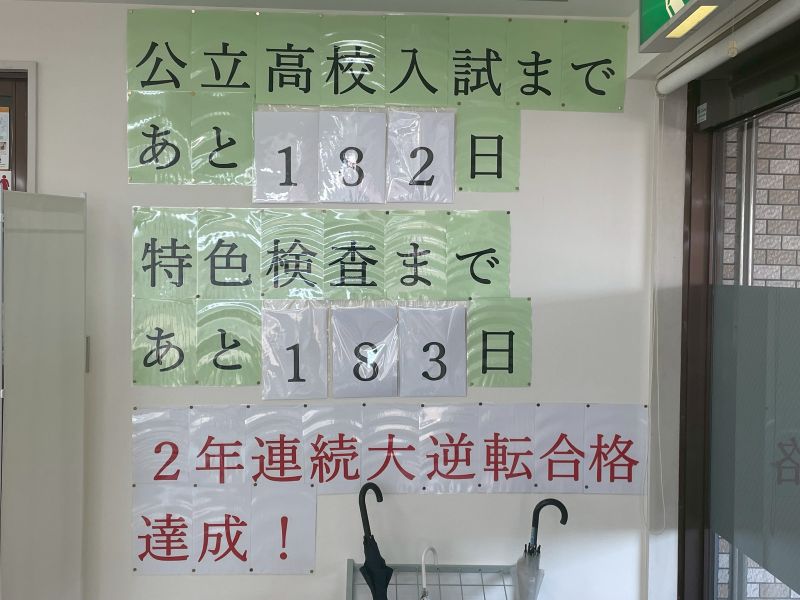 公立高校入試まで
あと182日
特色検査まで
あと183日
2年連続大逆転合格
達成！